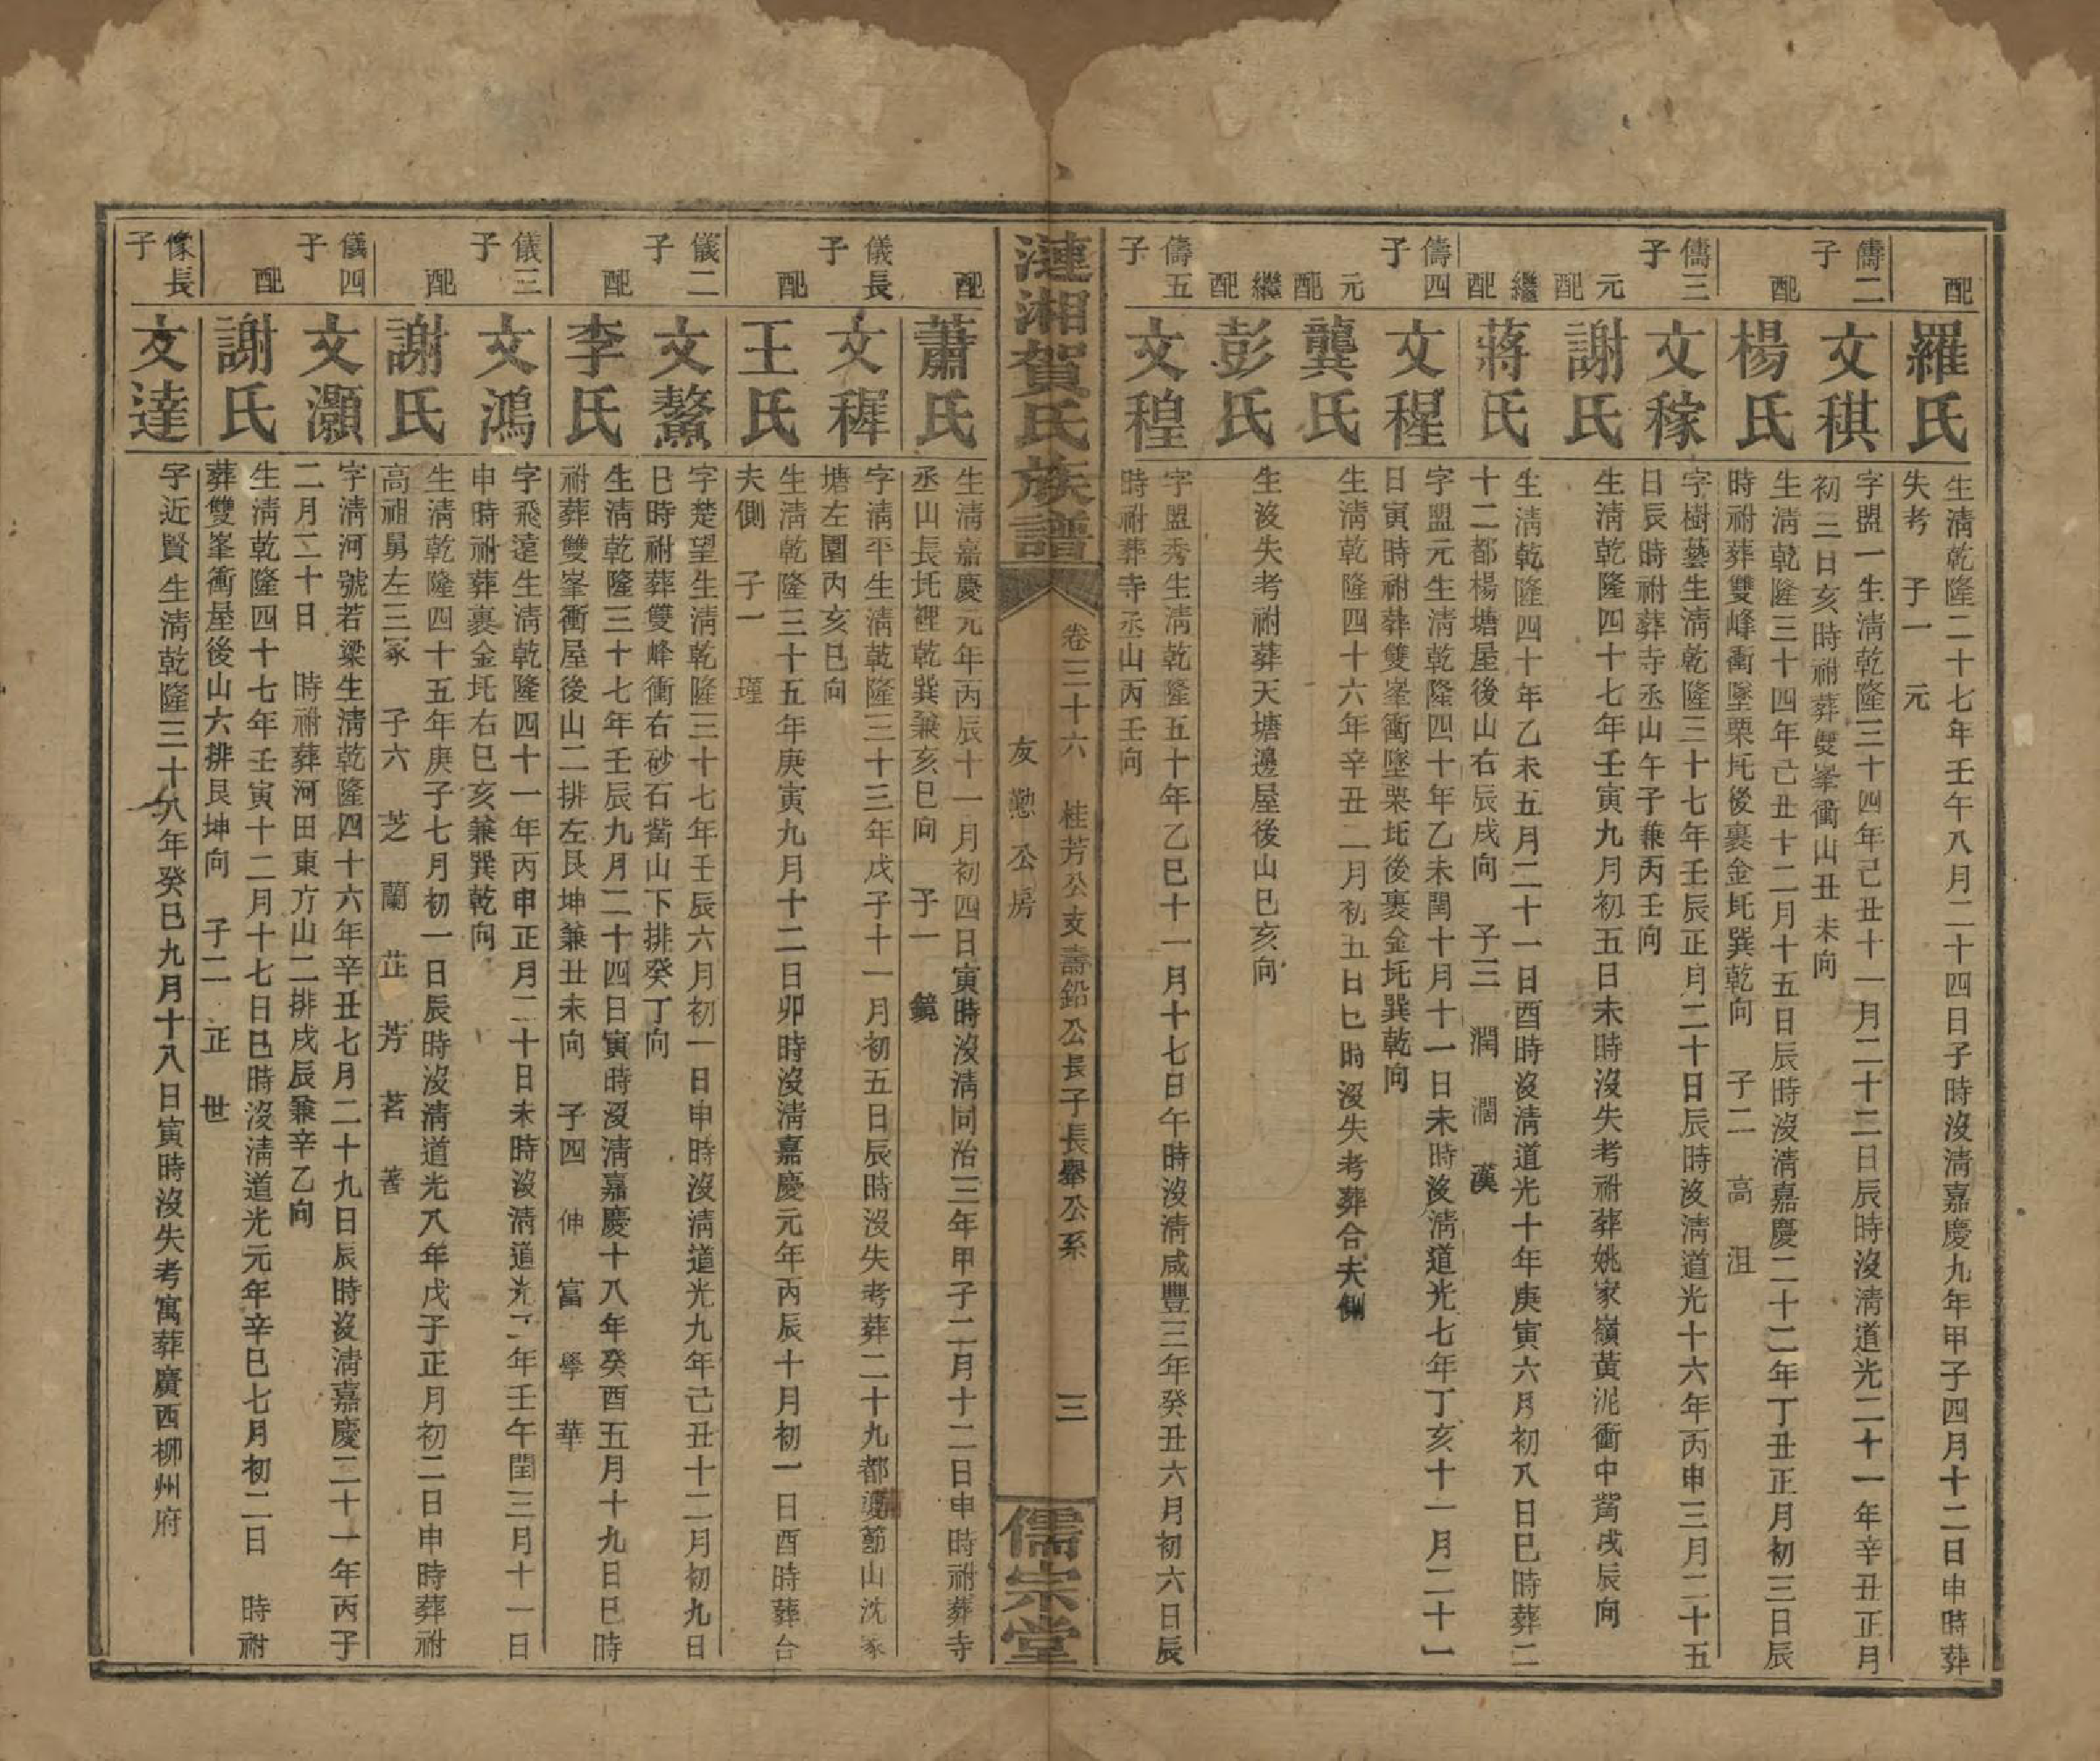 配
羅氏
生淸乾隆二十七年壬午八月二十四日子時沒淸嘉慶九年甲子四月十二日申時葬
失考　子一　元
儔二子
文稘
字盟一生淸乾隆三十四年己丑十一月二十二日辰時沒淸道光二十一年辛丑正月
初三日亥時祔葬雙峯衝山丑未向
配
楊氏
生淸乾隆三十四年己丑十二月十五日辰時沒淸嘉慶二十二年丁丑正月初三日辰
時祔葬雙峰衝墜栗坵後裏金坵巽乾向　子二　高　沮
儔三子
文稼
字樹藝生淸乾隆三十七年壬辰正月二十日辰時沒淸道光十六年丙申三月二十五
日辰時祔葬寺丞山午子兼丙壬向
元配
謝氏
生淸乾隆四十七年壬寅九月初五日未時沒失考祔葬姚家嶺黃泥衝中觜戌辰向
繼配
蔣氏
生淸乾隆四十年乙未五月二十一日酉時沒淸道光十年庚寅六月初八日巳時葬二
十二都楊塘屋後山右辰戌向　子三　潤　濶　漢
儔四子
文稷
字盟元生淸乾隆四十年乙未閏十月十一日未時沒淸道光七年丁亥十一月二十一
日寅時祔葬雙峯衝墜栗坵後裏金坵巽乾向
元配
龔氏
生淸乾隆四十六年辛丑二月初五日巳時沒失考葬合夫側
繼配
彭氏
生沒失考祔葬天塘邊屋後山巳亥向
儔五子
文稑
字盟秀生淸乾隆五十年乙巳十一月十七日午時沒淸咸豐三年癸丑六月初六日辰
時祔葬寺丞山丙壬向
漣湘賀氏族譜
卷三十六　桂芳公支壽鉛公長子長舉公系
友懃公房
三
儒宗堂
配
蕭氏
生淸嘉慶元年丙辰十一月初四日寅時沒淸同治三年甲子二月十二日申時祔葬寺
丞山長坵裡乾巽兼亥巳向　子一　鏡
儀長子
文穉
字淸平生淸乾隆三十三年戊子十一月初五日辰時沒失考葬二十九都邊節山沈家
塘左園內亥巳向
配
王氏
生淸乾隆三十五年庚寅九月十二日卯時沒淸嘉慶元年丙辰十月初一日酉時葬合
夫側　子一　瑾
儀二子
文鰲
字楚望生淸乾隆三十七年壬辰六月初一日申時沒淸道光九年己丑十二月初九日
巳時祔葬雙峰衝右砂石觜山下排癸丁向
配
李氏
生淸乾隆三十七年壬辰九月二十四日寅時沒淸嘉慶十八年癸酉五月十九日巳時
祔葬雙峯衝屋後山二排左艮坤兼丑未向　子四　伸　富　學　華
儀三子
文鴻
字飛遠生淸乾隆四十一年丙申正月二十日未時沒淸道光二年壬午閏三月十一日
申時祔葬裏金坵右巳亥兼巽乾向
配
謝氏
生淸乾隆四十五年庚子七月初一日辰時沒淸道光八年戊子正月初二日申時葬祔
高祖舅左三冢　子六　芝　蘭　芷　芳　茗　蓍
儀四子
文灝
字淸河號若梁生淸乾隆四十六年辛丑七月二十九日辰時沒淸嘉慶二十一年丙子
二月二十日　時祔葬河田東方山二排戌辰兼辛乙向
配
謝氏
生淸乾隆四十七年壬寅十二月十七日巳時沒淸道光元年辛巳七月初二日　時祔
葬雙峯衝屋後山六排艮坤向　子二　正　世
像長子
文達
字近賢生淸乾隆三十八年癸巳九月十八日寅時沒失考寓葬廣西柳州府